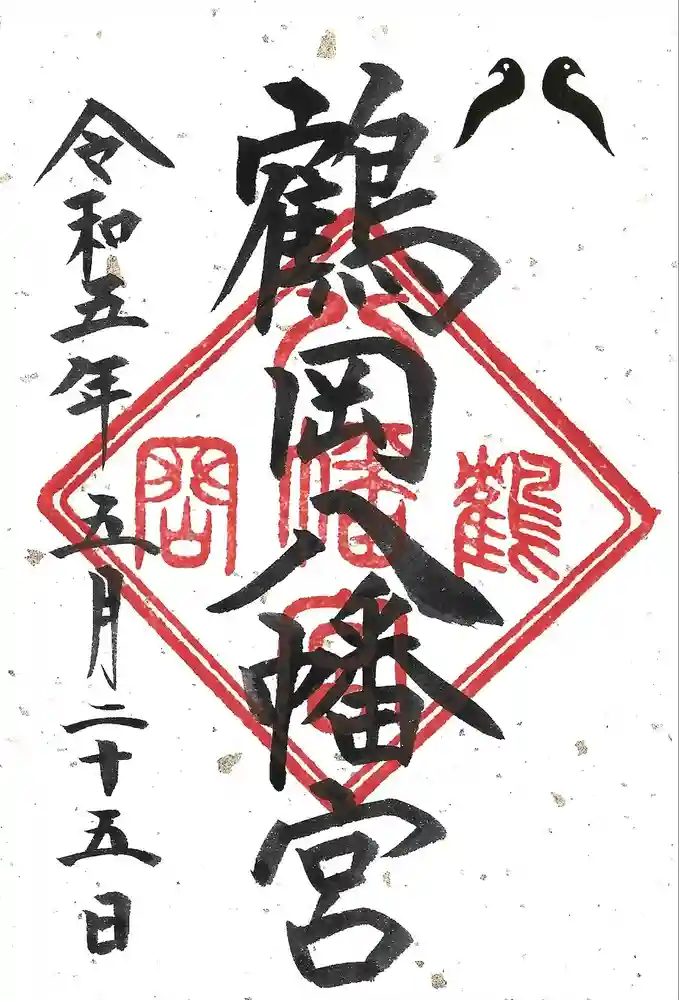 鶴岡八幡宮
令和五年五月二十五日
鶴
八幡宮
岡